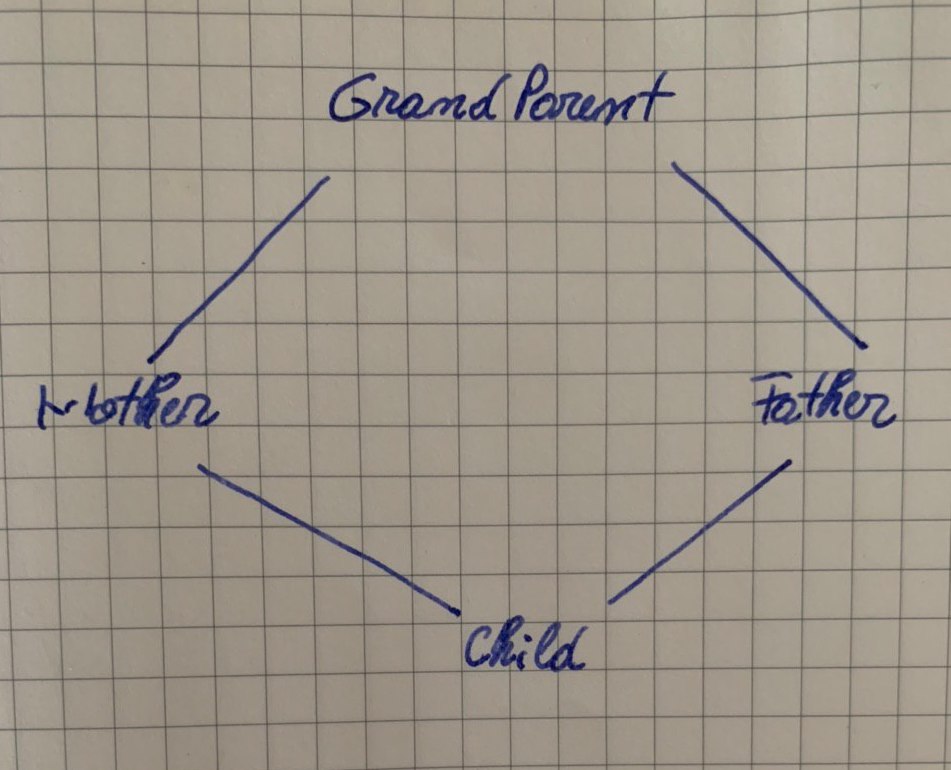 Grand Parent
Mother
Father
Child